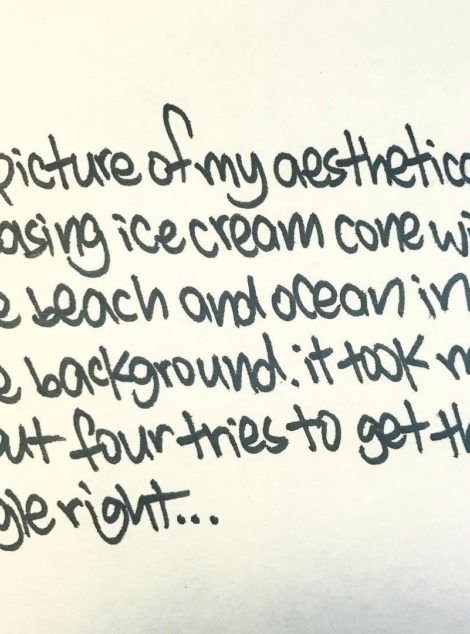 picture of my aesthetica
asing ice cream cone wi
e beach and ocean in
e background. it took m
out four tries to get th
gle right...